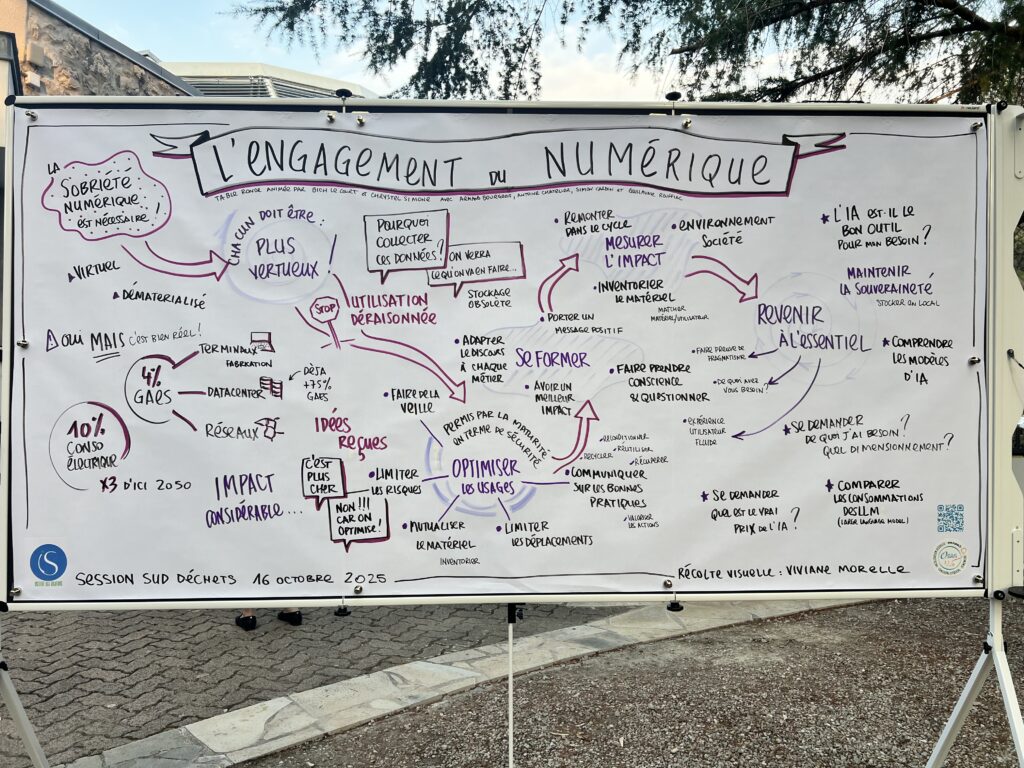 L'ENGAGEMENT DU NUMÉRIQUE
LA
SOBRIÉTÉ
NUMÉRIQUE
EST NÉCESSAIRE !
VIRTUEL
DÉMATERIALISÉ
CHACUN DOIT ÊTRE :
PLUS
VERTUEUX !
STOP
UTILISATION
DÉRAISONNÉE
POURQUOI
COLLECTER
CES DONNÉES ?
ON VERRA
CE QU'ON VA EN FAIRE...
STOCKAGE
OBSOLÈTE
OUI MAIS C'EST BIEN RÉEL !
4%
GAES
TERMINAUX
FABRICATION
DATACENTER
DÉJA
+75%
GAES
RÉSEAUX
10%
CONSO
ÉLECTRIQUE
X3 D'ICI 2050
IMPACT
CONSIDÉRABLE...
IDÉES
REÇUES
C'EST
PLUS
CHER
NON !!!
CAR ON
OPTIMISE !
PERMIS PAR LA MATURITÉ
EN TERME DE SÉCURITÉ
OPTIMISER
LES USAGES
FAIRE DE LA
VEILLE
LIMITER
LES RISQUES
MUTUALISER
LE MATÉRIEL
INVENTORIER
LIMITER
LES DÉPLACEMENTS
COMMUNIQUER
SUR LES BONNES
PRATIQUES
VALORISER
LES ACTIONS
RECONDITIONNER
RÉUTILISER
RECYCLER
RÉCUPÉRER
SE FORMER
ADAPTER
LE DISCOURS
À CHAQUE
MÉTIER
AVOIR UN
MEILLEUR
IMPACT
FAIRE PRENDRE
CONSCIENCE
& QUESTIONNER
PORTER UN
MESSAGE POSITIF
MESURER
L'IMPACT
REMONTER
DANS LE CYCLE
ENVIRONNEMENT
SOCIÉTÉ
INVENTORIER
LE MATÉRIEL
MATCHER
MATÉRIEL/UTILISATEUR
REVENIR
À L'ESSENTIEL
FAIRE PREUVE DE
PRAGMATISME
DE QUOI AVEZ
VOUS BESOIN ?
EXPÉRIENCE
UTILISATEUR
FLUIDE
L'IA EST-IL LE
BON OUTIL
POUR MON BESOIN ?
MAINTENIR
LA SOUVERAINETÉ
STOCKER EN LOCAL
COMPRENDRE
LES MODÈLES
D'IA
SE DEMANDER
DE QUOI J'AI BESOIN ?
QUEL DIMENSIONNEMENT ?
SE DEMANDER
QUEL EST LE VRAI
PRIX DE L'IA ?
COMPARER
LES CONSOMMATIONS
DES LLM
(LARGE LANGUAGE MODEL)
SESSION SUD DÉCHETS 16 OCTOBRE 2025
RÉCOLTE VISUELLE : VIVIANE MORELLE